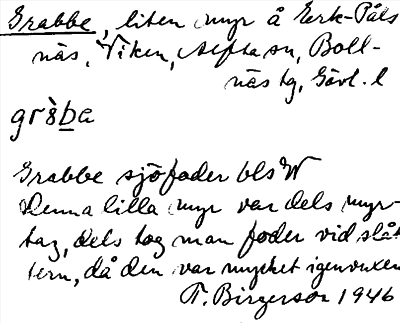 Grabbe, liten myr å Erk-Påls
näs, Viken, Alfta sn, Boll-
näs tg, Gävl. l
gràba
Grabbe sjöfoder bls W
Denna lilla myr var dels myr-
tag, dels tog man foder vid slåt
tern, då den var mycket igenvuxen
T. Birgerson 1946